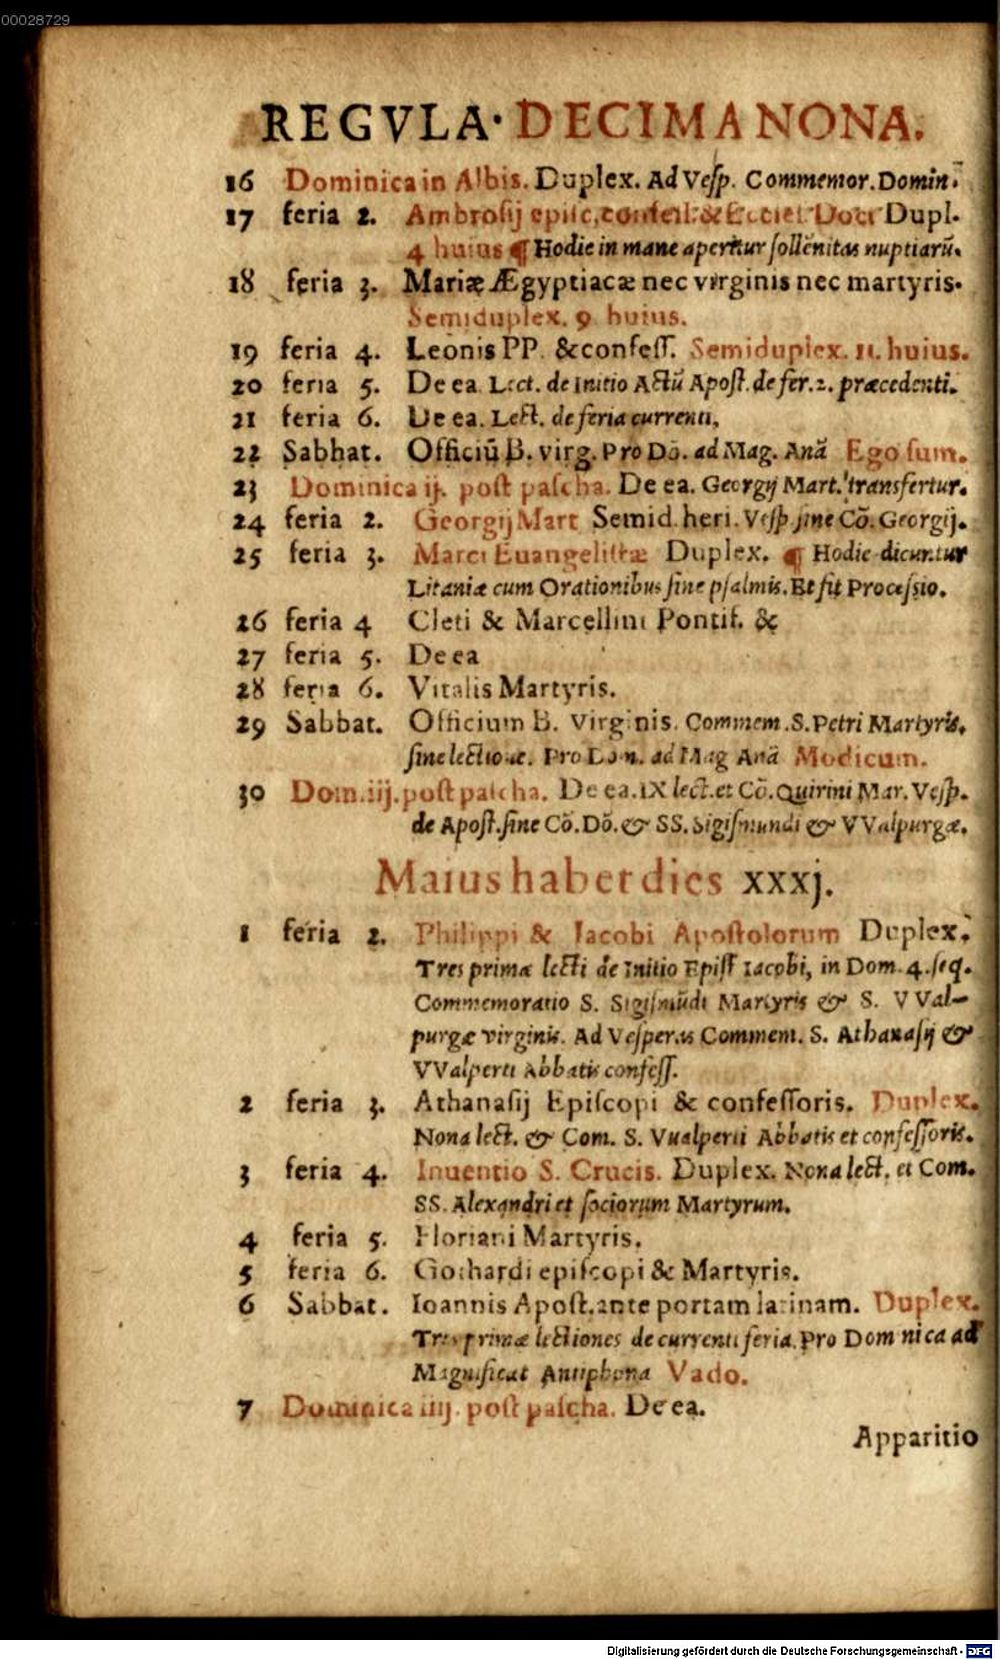 00028729
REGVLA· DECIMANONA.
16 Dominica in Albis. Duplex. Ad Vesp. Commemor. Domin̄.
17 feria 2. Ambrosij episc, confess. & Eccles. Doct Dupl.
4 huius ¶ Hodie in mane aperitur sollēnitas nuptiarū.
18 feria 3. Mariæ Ægyptiacæ nec virginis nec martyris.
Semiduplex. 9 huius.
19 feria 4. Leonis PP. & confess. Semiduplex. 11. huius.
20 feria 5. De ea. Lect. de Initio Actū Apost. de fer. 2. præcedenti.
21 feria 6. De ea. Lect. de feria currenti,
22 Sabbat. Officiū B. virg. Pro Dō. ad Mag. Anā Ego sum.
23 Dominica ij. post pascha. De ea. Georgij Mart. transfertur.
24 feria 2. Georgij Mart Semid. heri. Vesp sine Cō. Georgij.
25 feria 3. Marci Euangelistæ Duplex. ¶ Hodie dicuntur
Litaniæ cum Orationibus sine psalmis. Et fit Processio.
26 feria 4 Cleti & Marcellini Pontif. &
27 feria 5. De ea
28 feria 6. Vitalis Martyris.
29 Sabbat. Officium B. Virginis. Commem. S. Petri Martyris,
sine lectione. Pro Dom. ad Mag Anā Modicum.
30 Dom. iij. post pascha. De ea. IX lect. et Cō. Quirini Mar. Vesp.
de Apost. sine Cō. Dō. & SS. Sigismundi & VValpurgæ.
Maius habet dies xxxj.
1 feria 2. Philippi & Jacobi Apostolorum Duplex.
Tres primæ lecti de Initio Epist Iacobi, in Dom. 4. seq.
Commemoratio S. Sigismūdi Martyris & S. VVal-
purgæ virginis. Ad Vesperas Commem. S. Athanasij &
VValperti Abbatis confess.
2 feria 3. Athanasij Episcopi & confessoris. Duplex.
Nona lect. & Com. S. Vualperti Abbatis et confessoris.
3 feria 4. Inuentio S. Crucis. Duplex. Nona lect. et Com.
SS. Alexandri et sociorum Martyrum.
4 feria 5. Floriani Martyris.
5 feria 6. Gothardi episcopi & Martyris.
6 Sabbat. Ioannis Apost. ante portam latinam. Duplex.
Tres primæ lectiones de currenti feria. Pro Dominica ad
Magnificat Antiphona Vado.
7 Dominica iiij. post pascha. De ea.
Apparitio
Digitalisierung gefördert durch die Deutsche Forschungsgemeinschaft - DFG